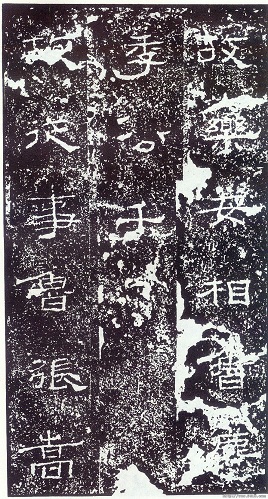 故樂安相魯麃
季公千
故从事魯張嵩